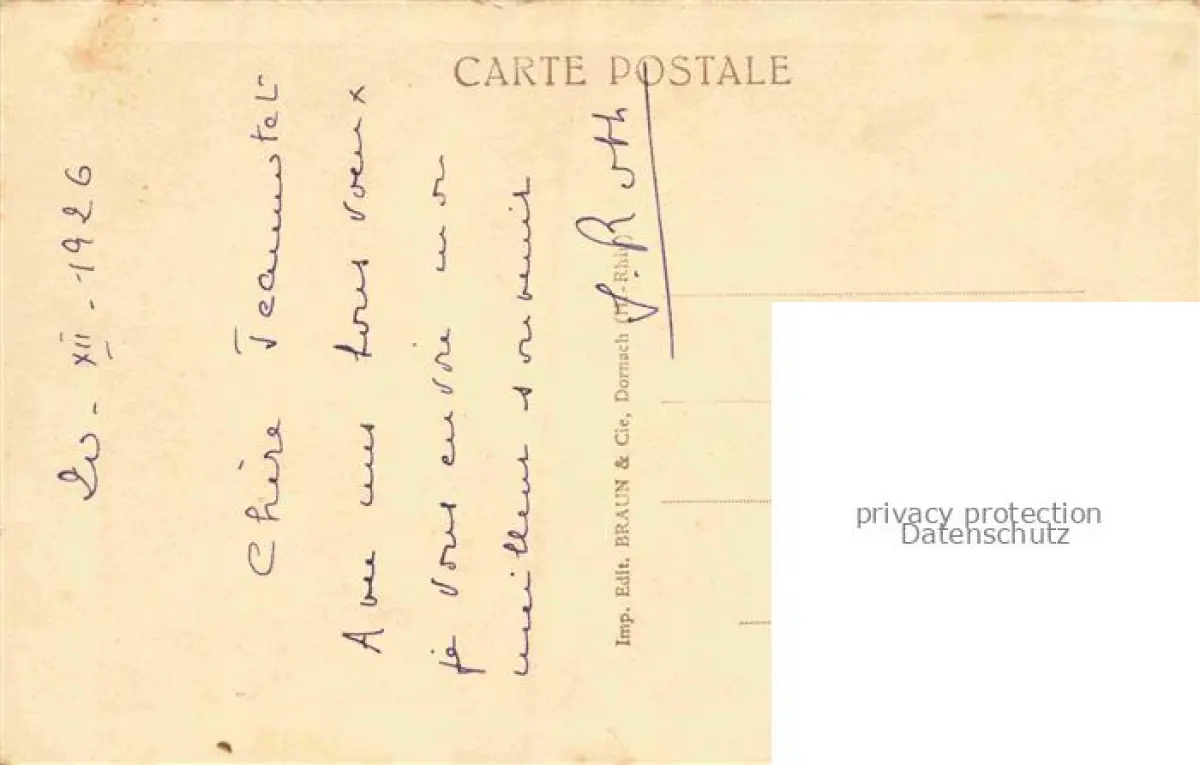 CARTE POSTALE
XII - 1926
Chère
Avec mes bons voeux
je vous envoie mon
meilleur souvenir
J. Roth
Imp. Edit. BRAUN & Cie, Dornach (Ht-Rhin)
privacy protection
Datenschutz